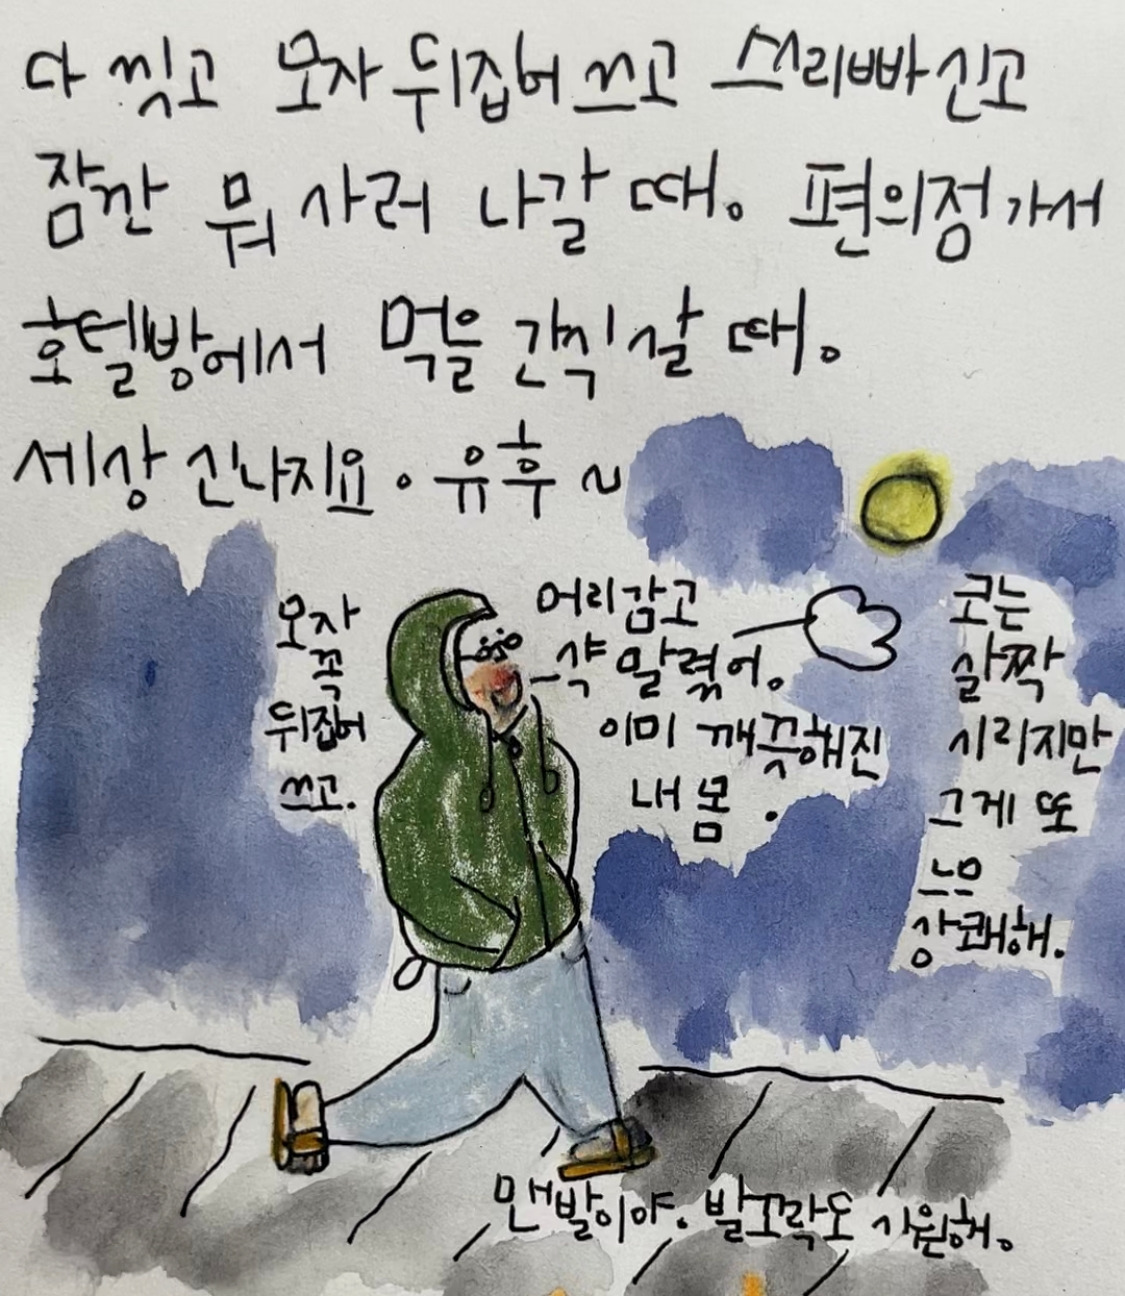 다 씻고 모자 뒤집어 쓰고 쓰리빠 신고
잠깐 뭐 사러 나갈 때。 편의점 가서
호텔방에서 먹을 간식 살 때。
세상 신나지요。 유후~
모자
꼭
뒤집어
쓰고.
머리감고
싹 말렸어。
이미 깨끗해진
내 몸.
코는
살짝
시리지만
그게 또
느므
상쾌해.
맨발이야. 발꼬락도 시원해。